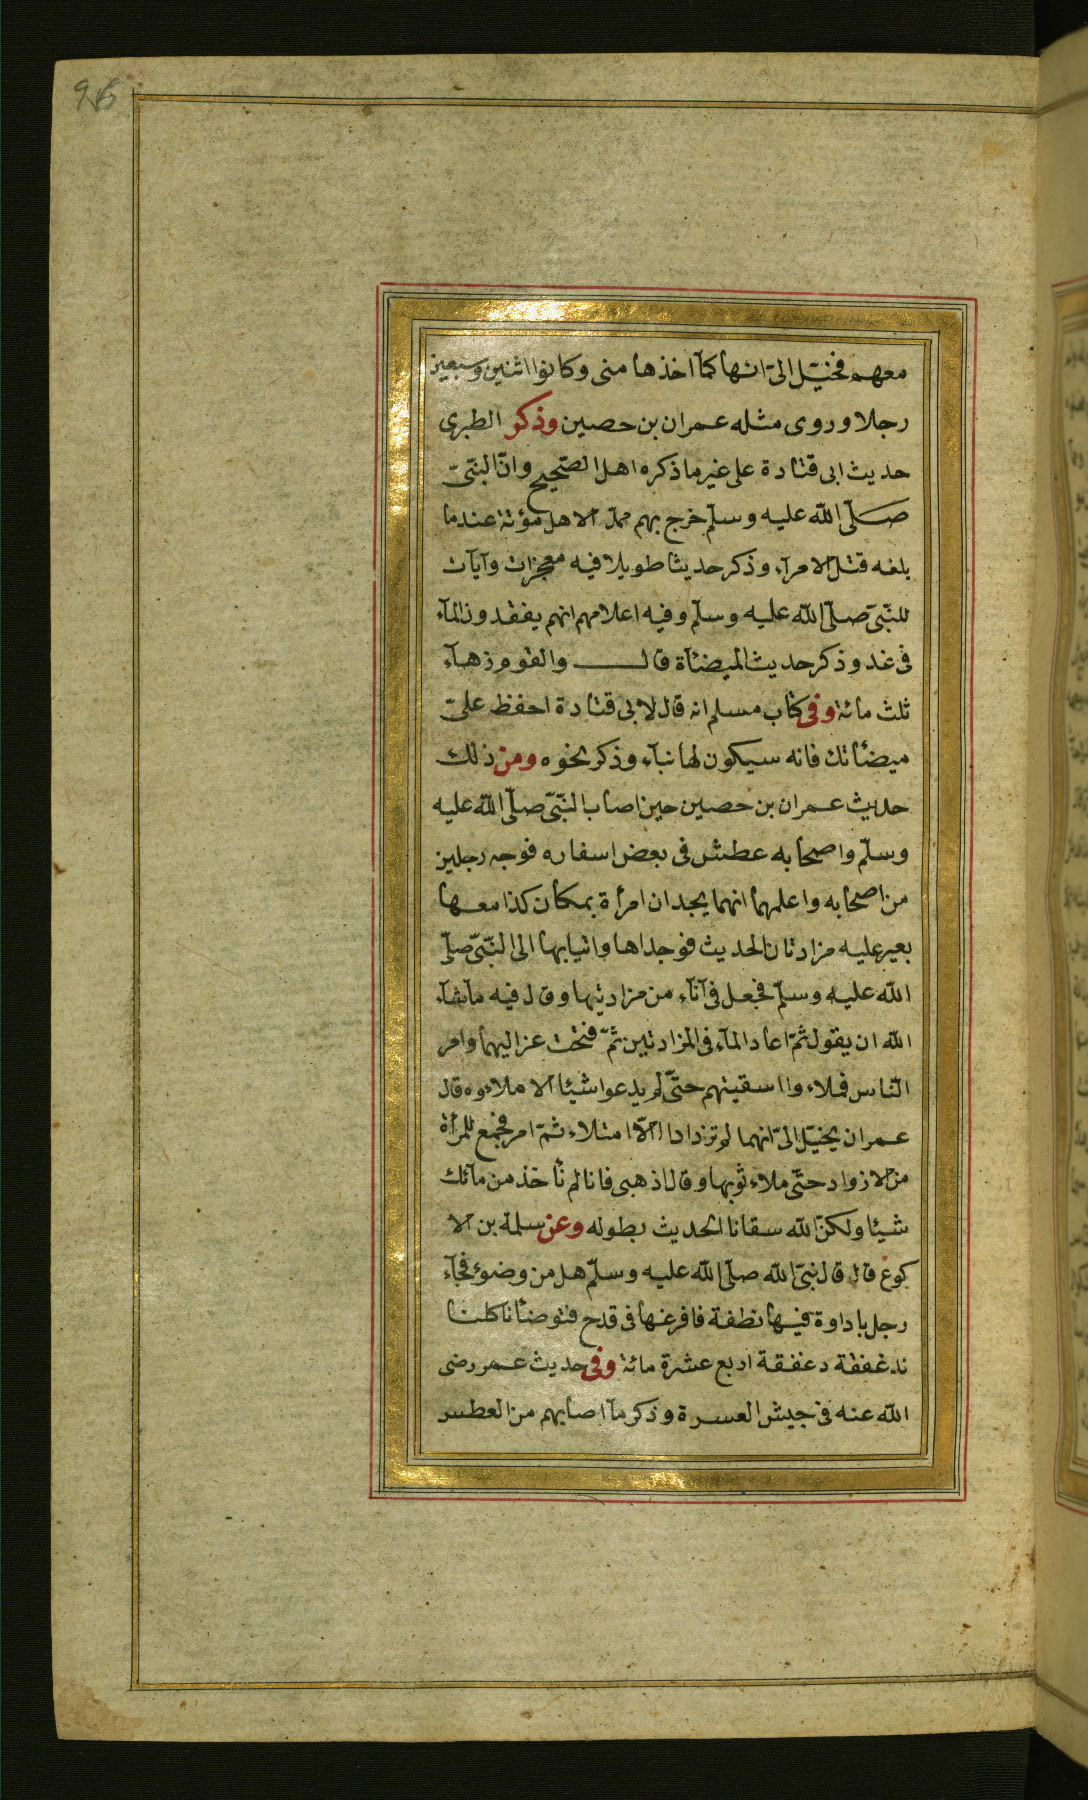 معهم فخيّل الىّ انها كمآ اخذها منى وكانوا اثنين وسبعين
رجلا وروى مثله عمران بن حصين وذكر الطبرى
حديث ابى قتادة على غير ما ذكره اهل الصّحيح وانّ النّبىّ
صلّى اللّه عليه وسلّم خرج بهم ممدّا لاهل مؤتة عندما
بلغه قتل الامرآء وذكر حديثا طويلا فيه معجزات وآيات
للنّبىّ صلّى اللّه عليه وسلّم وفيه اعلامهم انهم يفقدون المآء
فى غد وذكر حديث الميضئاة قال والقوم زهآء
ثلث مائة وفى كتاب مسلم انه قال لابى قتادة احفظ علىّ
ميضئاتك فانه سيكون لها نبآء وذكر نحوه ومن ذلك
حديث عمران بن حصين حين اصاب النّبىّ صلّى اللّه عليه
وسلّم واصحابه عطش فى بعض اسفاره فوجه رجلين
من اصحابه واعلمهما انهما يجدان امرأة بمكان كذا معها
بعير عليه مزادتان الحديث فوجداها واتيا بها الى النّبىّ صلّى
اللّه عليه وسلّم فجعل فى آنآء من مزادتيها وقال فيه ما شآء
اللّه ان يقول ثمّ اعاد المآء فى المزادتين ثمّ فتحت عزاليهما وامر
النّاس فملاء وا اسقيتهم حتّى لم يدعوا شيئا الا ملاءوه قال
عمران يخيّل الىّ انهما لم تزدادا الّا امتلاء ثمّ امر فجمع للمرأة
من الازواد حتّى ملاء ثوبها وقال اذهبى فانا لم نأخذ من مائك
شيئا ولكنّ اللّه سقانا الحديث بطوله وعن سلمة بن الا
كوع قال قال نبىّ اللّه صلّى اللّه عليه وسلّم هل من وضوئ فجآء
رجل باداوة فيها نطفة فافرغها فى قدح فتوضأنا كلنا
ندغفقة دغفقة اربع عشرة مائة وفى حديث عمر رضى
اللّه عنه فى جيش العسرة وذكر مآ اصابهم من العطس